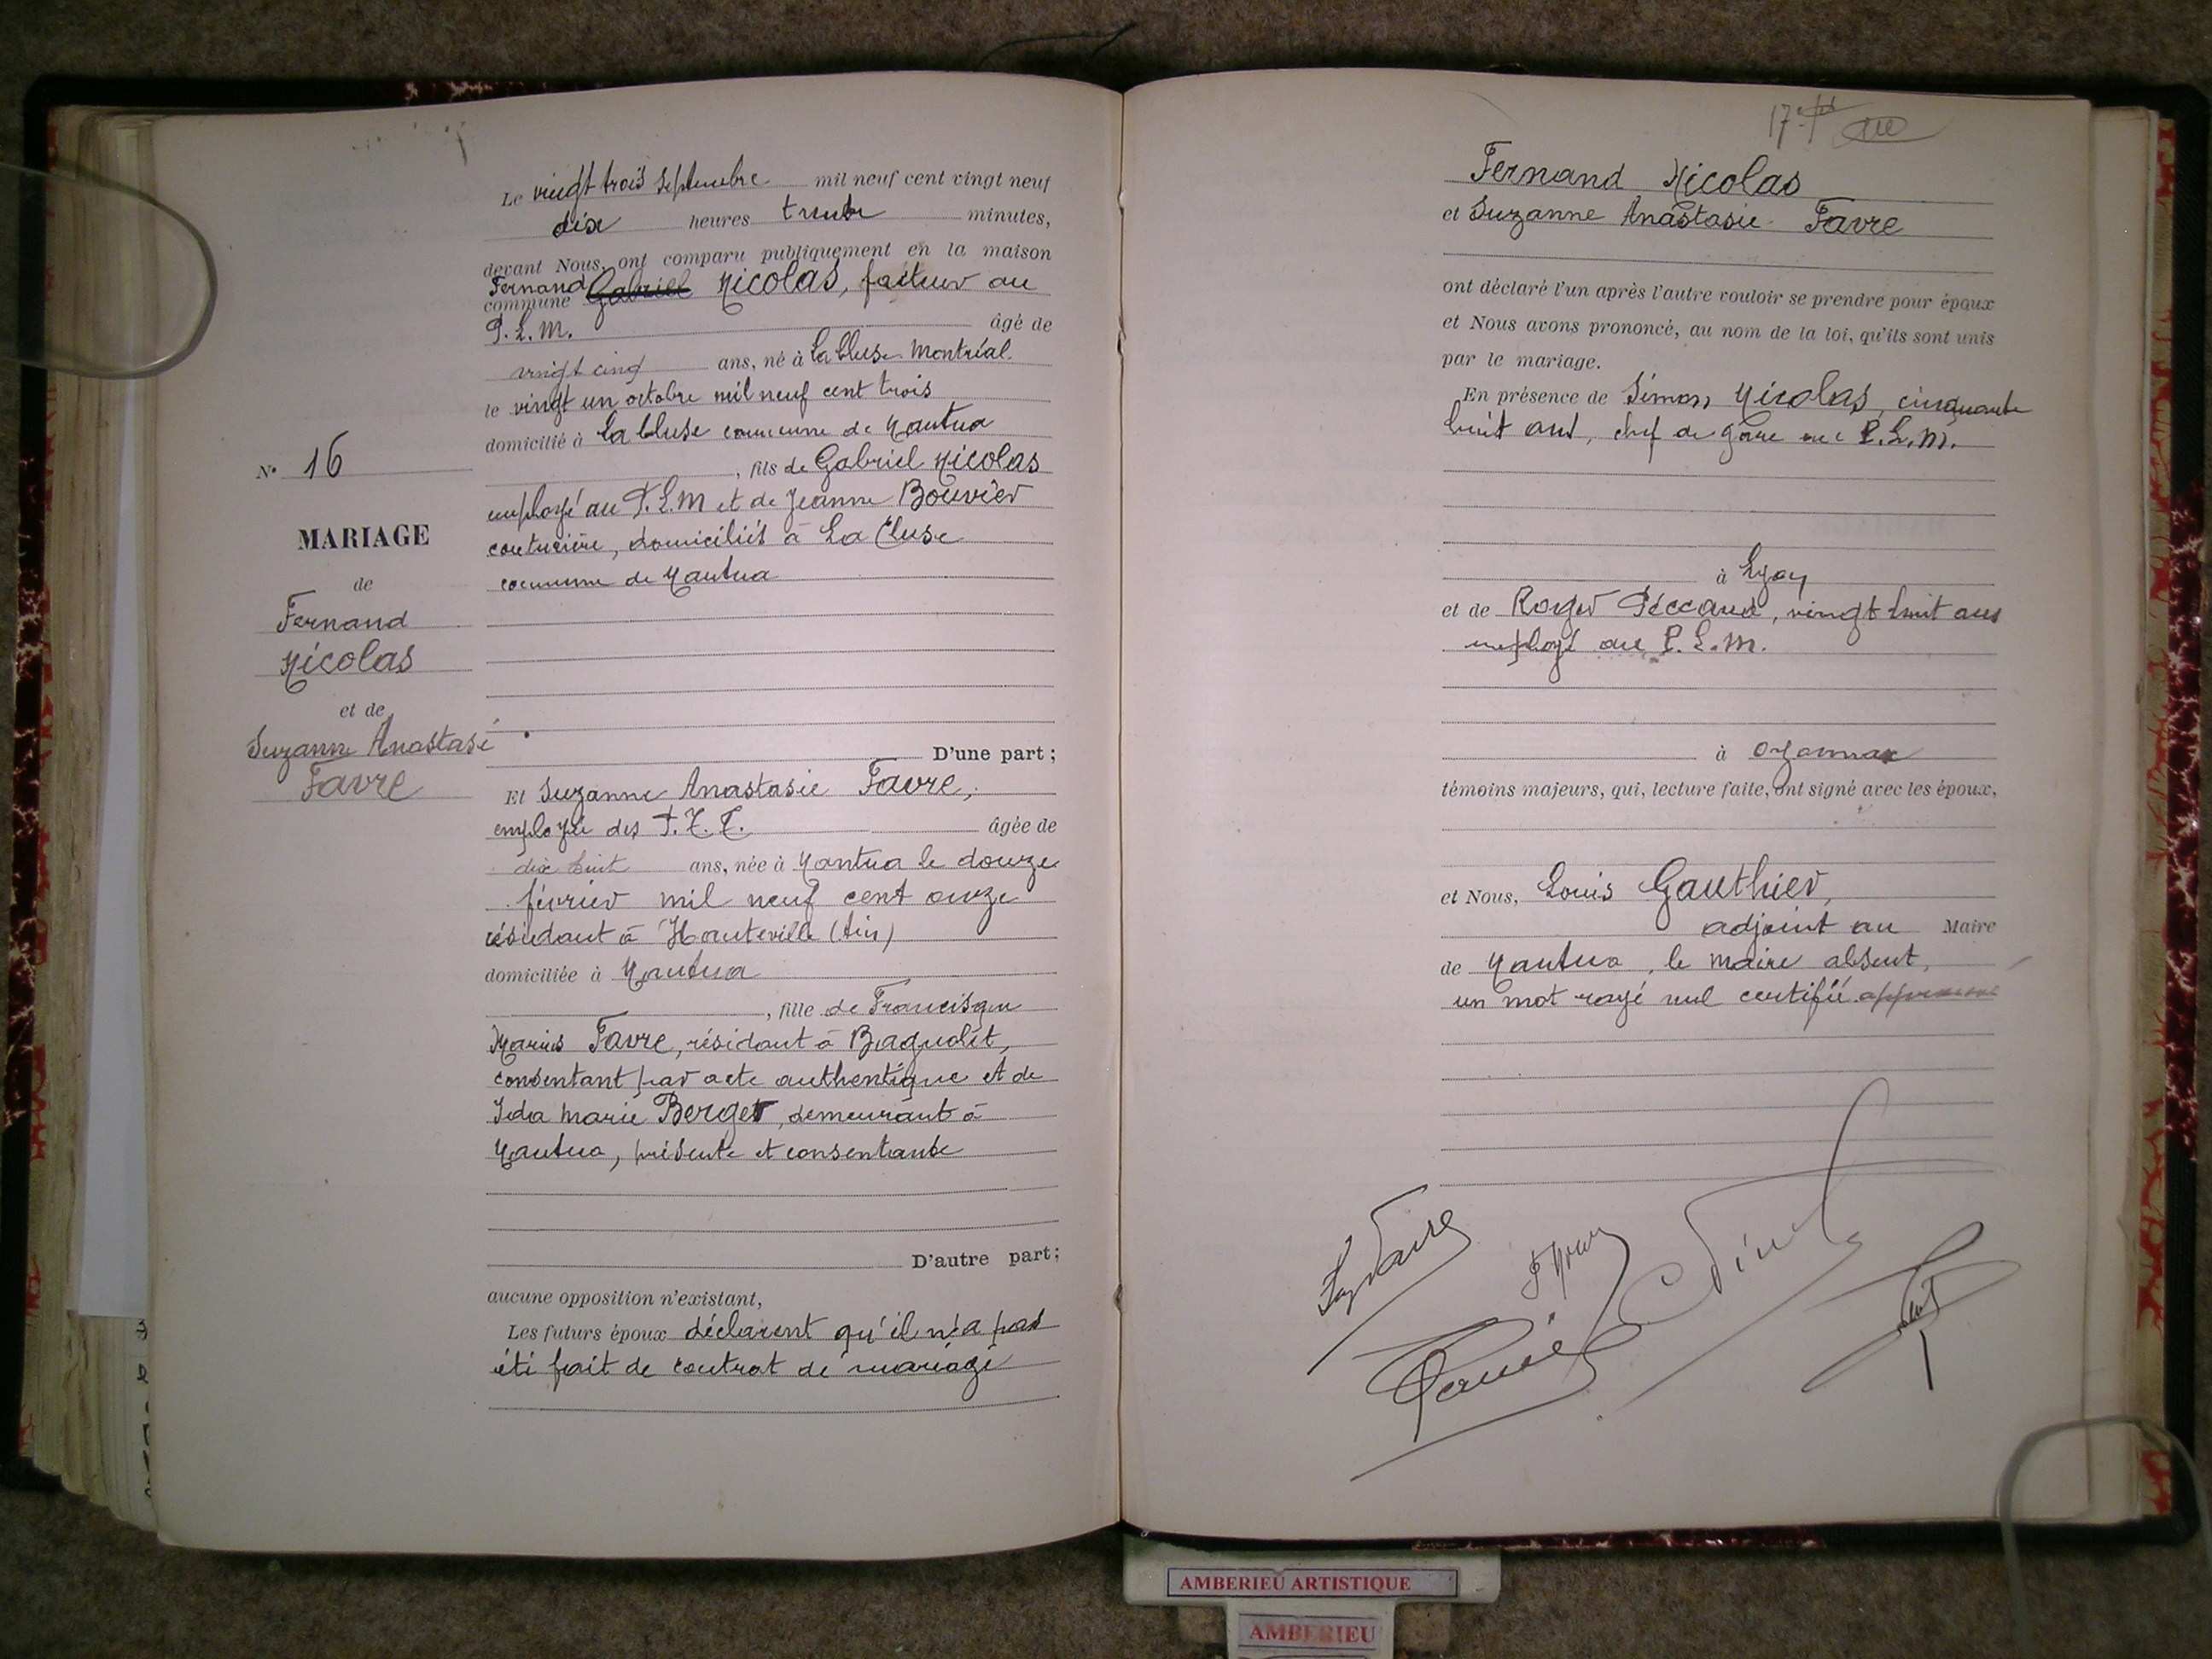 Le vingt trois septembre mil neuf cent vingt neuf
dix heures trente minutes,
devant Nous, ont comparu publiquement en la maison
commune Fernand Gabriel Nicolas, facteur au
P.L.M. âgé de
vingt cinq ans, né à La Cluse Montréal
le vingt un octobre mil neuf cent trois
domicilié à La Cluse commune de Nantua
, fils de Gabriel Nicolas
employé au P.L.M et de Jeanne Bouvier
couturière, domiciliés à La Cluse
commune de Nantua
D'une part;
Et Suzanne Anastasie Favre,
employée des P.T.T. âgée de
dix huit ans, née à Nantua le douze
février mil neuf cent onze
résidant à Hauteville (Ain)
domiciliée à Nantua
, fille de Francisque
Marius Favre, résidant à Bagnolet,
consentant par acte authentique et de
Ida Marie Berger, demeurant à
Nantua, présente et consentante
D'autre part;
aucune opposition n'existant,
Les futurs époux déclarent qu'il n'a pas
été fait de contrat de mariage
N° 16
MARIAGE
de
Fernand
Nicolas
et de
Suzanne Anastasie
Favre
17
Fernand Nicolas
et Suzanne Anastasie Favre
ont déclaré l'un après l'autre vouloir se prendre pour époux
et Nous avons prononcé, au nom de la loi, qu'ils sont unis
par le mariage.
En présence de Simon Nicolas, cinquante
huit ans, chef de gare au P.L.M.
à Lyon
et de Roger Péccaud, vingt huit ans
employé au P.L.M.
à Oyonnax
témoins majeurs, qui, lecture faite, ont signé avec les époux,
et Nous, Louis Gauthier,
adjoint au Maire
de Nantua, le maire absent,
un mot rayé nul certifié
S. Favre
AMBERIEU ARTISTIQUE
AMBERIEU